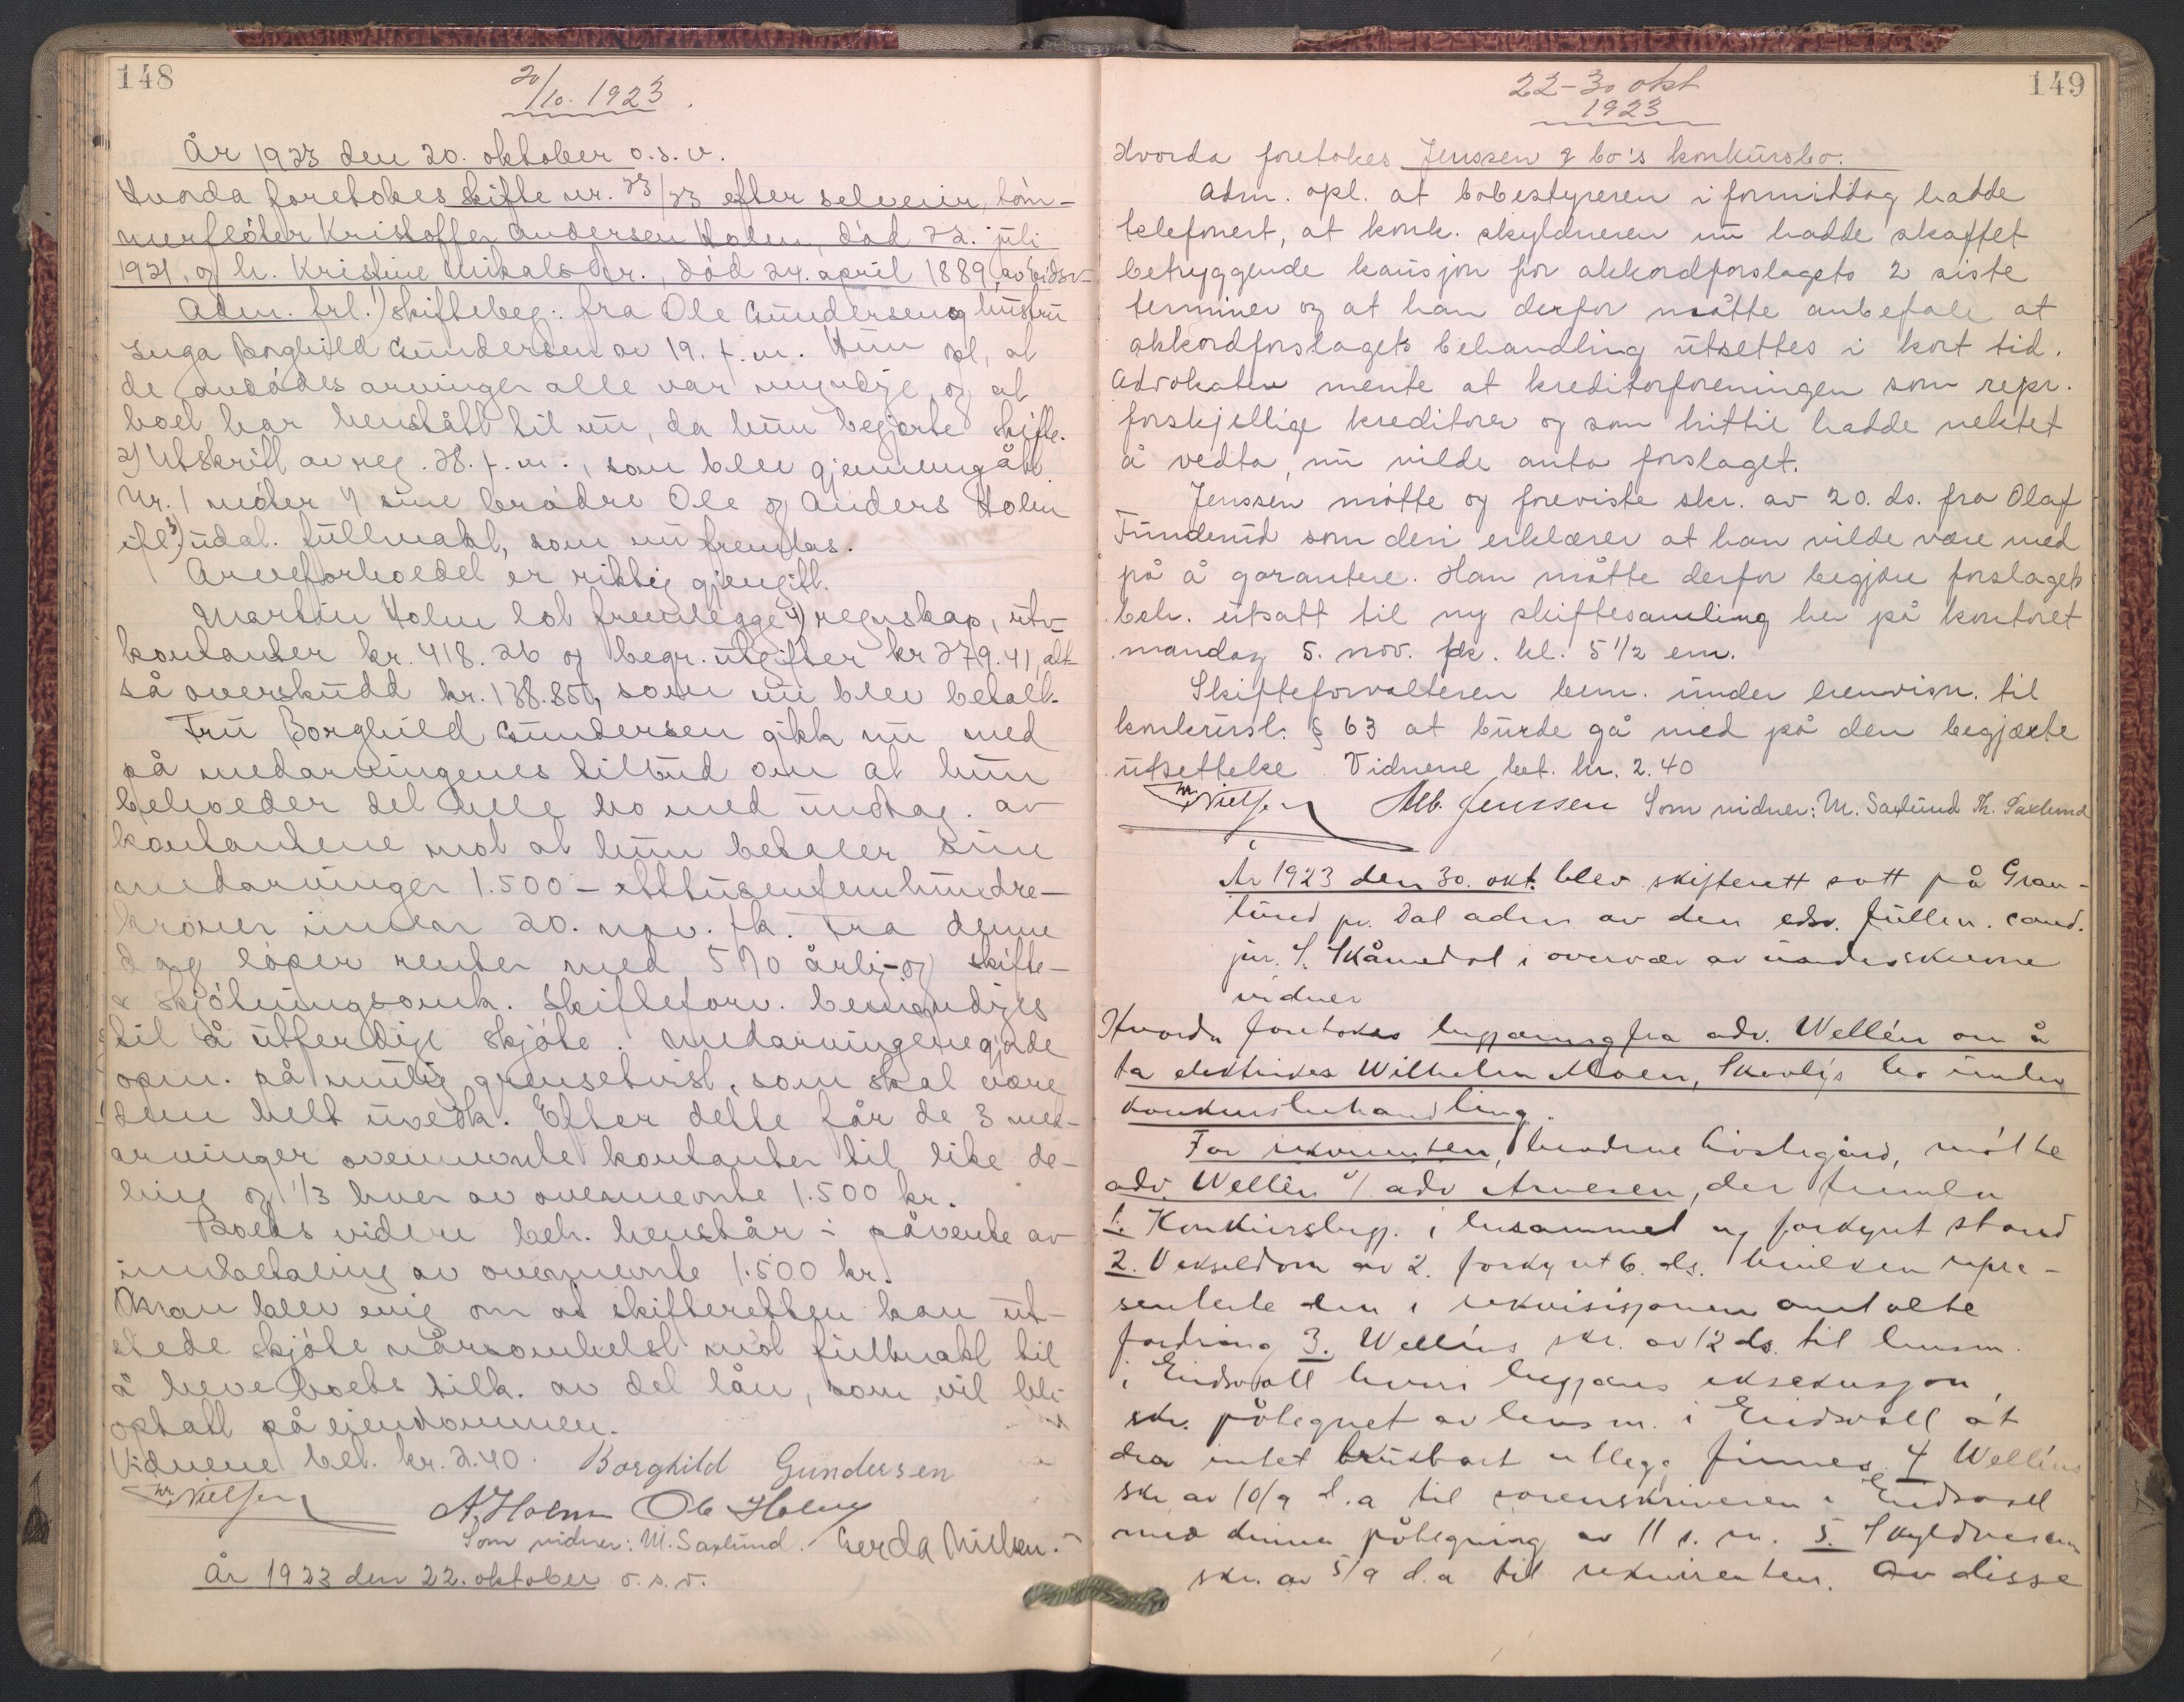 148
20/10. 1923.
År 1923 den 20. oktober o.s.v.
Hvorda foretokes skifte nr. 23/23 efter selveier, töm-
merflöter Kristoffer Andersen Holm, död 22. juli
1921, og h. Kristine Mikalsdr., död 24. april 1889, av Eidsv-
Adm. frl. 1) skiftebeg. fra Ole Gundersen og hustru
Inga Borghild Gundersen av 19. f.m. Hun opl. at
de avdödes arvinger alle var myndige og at
boet har henstått til nu, da hun begjærte skifte.
2) Utskrift av reg. 28. f.m., som blev gjennemgått.
Nr. 1 möter f sine brödre Ole og Anders Holm
ifl. 3) udat. fullmakt, som nu fremlas.
Arveforholdet er riktig gjengitt.
Martin Holm lot fremlegge 4) regnskap, utv.
kontanter kr. 418.26 og begr. utgifter kr 279.41, alt-
så overskudd kr. 138.85, som nu blev betalt.
Fru Borghild Gundersen gikk nu med
på medarvingenes tilbud om at hun
beholder det hele bo med undtag. av
kontantene mot at hun betaler sine
medarvinger 1.500 - etttusenfemhundre-
kroner innen 20. nov. fk. Fra denne
dag löper renter med 5 % årlig og skifte-
& skjötningsomk. Skifteforv. bemyndiges
til å utferdige skjöte. Medarvingene gjorde
opm. på mulig grensetvist, som skal være
dem helt uvedk. Efter dette får de 3 med-
arvinger ovennevnte kontanter til like de-
ling og 1/3 hver av ovennevnte 1.500 kr.
Boets videre beh. henstår i påvente av
innbetaling av ovennevnte 1.500 kr.
Man blev enig om at skifteretten kan ut-
stede skjöte nårsomhelst mot fullmakt til
å heve boets tilk. av det lån, som vil bli
optatt på eiendommen.
Vidnene bet. kr. 2.40. Borghild Gundersen
Nielsen
A. Holm Ole Holm
Som vidner: M. Saxlund. Gerda Nielsen.
År 1923 den 22. oktober o.s.v.
149
22-30 okt
1923
Hvorda foretokes Jenssen & Co's konkursbo.
Adm. opl. at bobestyreren i formiddag hadde
telefonert, at konk. skyldneren nu hadde skaffet
betryggende kausjon for akkordforslagets 2 siste
terminer og at han derfor måtte anbefale at
akkordforslagets behandling utsettes i kort tid.
Advokaten mente at kreditorforeningen som repr.
forskjellige kreditorer og som hittil hadde nektet
å vedta, nu vilde anta forslaget.
Jenssen møtte og foreviste skr. av 20. ds. fra Olaf
Funderud som deri erklærer at han vilde være med
på å garantere. Han måtte derfor begjære forslagets
beh. utsatt til ny skiftesamling her på kontoret
mandag 5. nov. fk. kl. 5 1/2 em.
Skifteforvalteren bem. under henvisn. til
konkursl. § 63 at burde gå med på den begjærte
utsettelse Vidnene bet. kr. 2.40
Nielsen Alb. Jenssen Som vidner: M. Saxlund Th. Saxlund
År 1923 den 30. okt. blev skifterett satt på Gran-
lund pr. Dal adm av den edsv. fullm. cand.
jur. S. Skåmedal i overvær av underskrevne
vidner
Hvorda foretokes begjæring fra adv. Wellén om å
ta elektriker Wilhelm Moen, Skovly's bo under
konkursbehandling.
For rekvirenten, brødrene Eivstegård, møtte
adv. Wellén v/ adv Arnesen, der fremla
1. Konkursbegj. i besammet og forkynt stand
2. Vekseldom av 2. forkynt 6. ds. hvilken repre-
senterte den i rekvisisjonen omtalte
fordring 3. Welléns skr. av 12 ds. til lensm.
i Eidsvoll hvori begjæres eksekusjon,
skr. påtegnet av lensm. i Eidsvoll at
der intet brukbart utlegg finnes 4 Welléns
skr av 10/9 d.a til sorenskriveren i Eidsvoll
med dennes påtegning av 11 s. m. 5. Skyldneren
skr. av 5/9 d.a til rekvirenten. Av disse